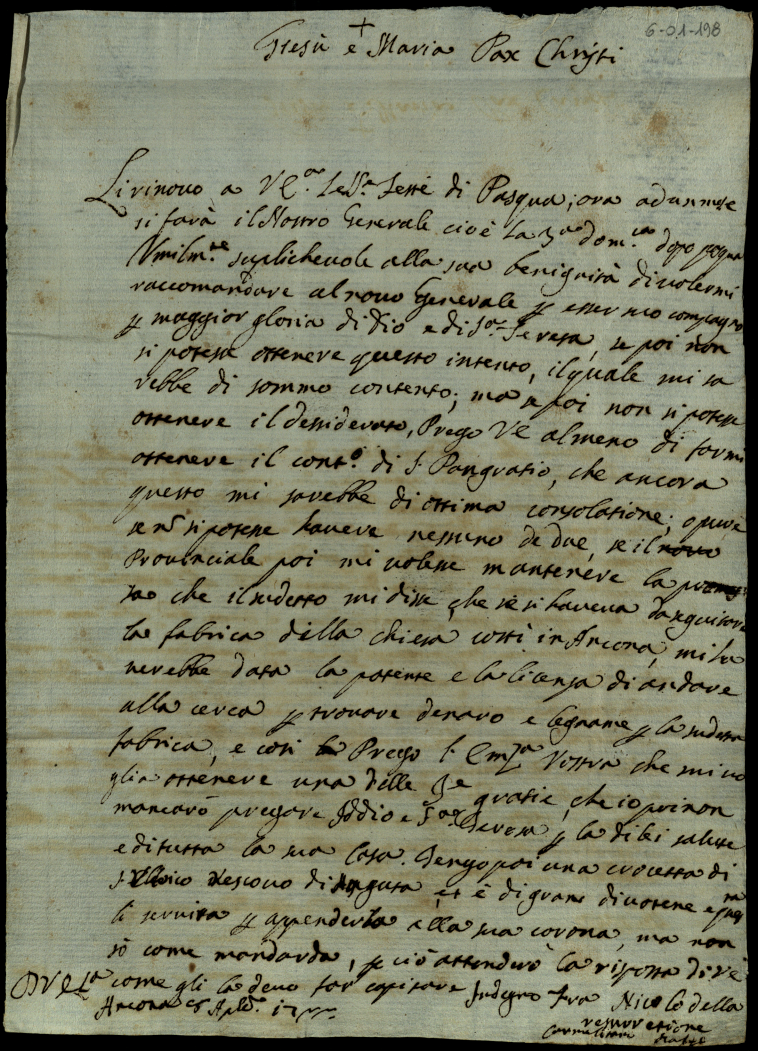 6-01-198
+
Giesù e Maria Pax Christi
Li rinovo a V E. le S. feste di Pasqua; ora ad un mese
si farà il Nostro Generale cioè la 3a dom.ca dopo pasqua
Vmilm.te suplichevole alla sua benignità di volermi
raccomandare al novo Generale p esser suo compagno
p maggior gloria di Dio e di S.a Teresa, se poi non
si potesse ottenere questo intento, il quale mi sa
rebbe di sommo contento; ma se poi non si potesse
ottenere il desiderato, Prego VE almeno di farmi
ottenere il conv.o di S. Pangratio, che ancora
questo mi sarebbe di ottima consolatione; o pure
se nō si potesse havere nessuno de due, se il novo
Provinciale poi mi volesse mantenere la promes
sa che il sudetto mi disse, che se si haveva da seguitare
la fabrica della chiesa costì in Ancona, mi ha
verebbe data la patente e la licenza di andare
alla cerca p trovare denaro e legname p la sudetta
fabrica, e così Prego l'Em.za Vostra che mi vo
glia ottenere una delle 3e gratie, che io poi non
mancarò pregare Iddio e S.a Teresa p la di lei salute
e di tutta la sua Casa. Tengo poi una crocetta di
S. Vescovo di et è di gran divotione
li servirà p appenderla alla sua corona, ma non
sò come mandarla, p ciò attenderò la risposta di VE
come gli la devo far capitare
Di V E
Ancona Aple
Indegno Fra Nicolò della
resurretione
Carmelitano scalzo